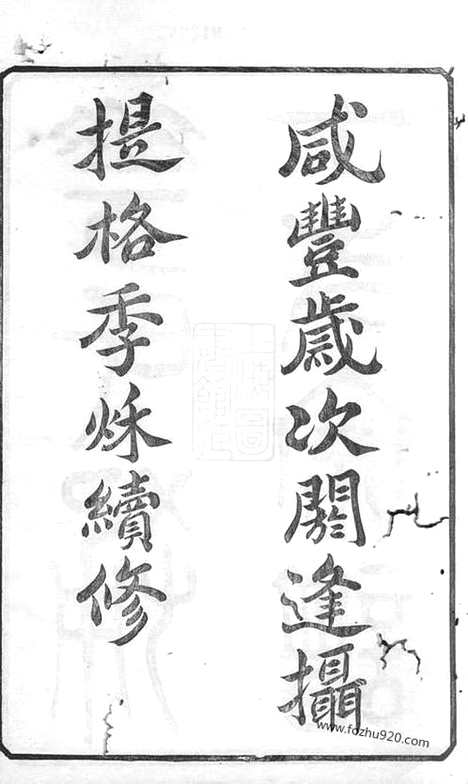 咸豐歲次閼逢攝
提格季秌續修
www.fozhu920.com